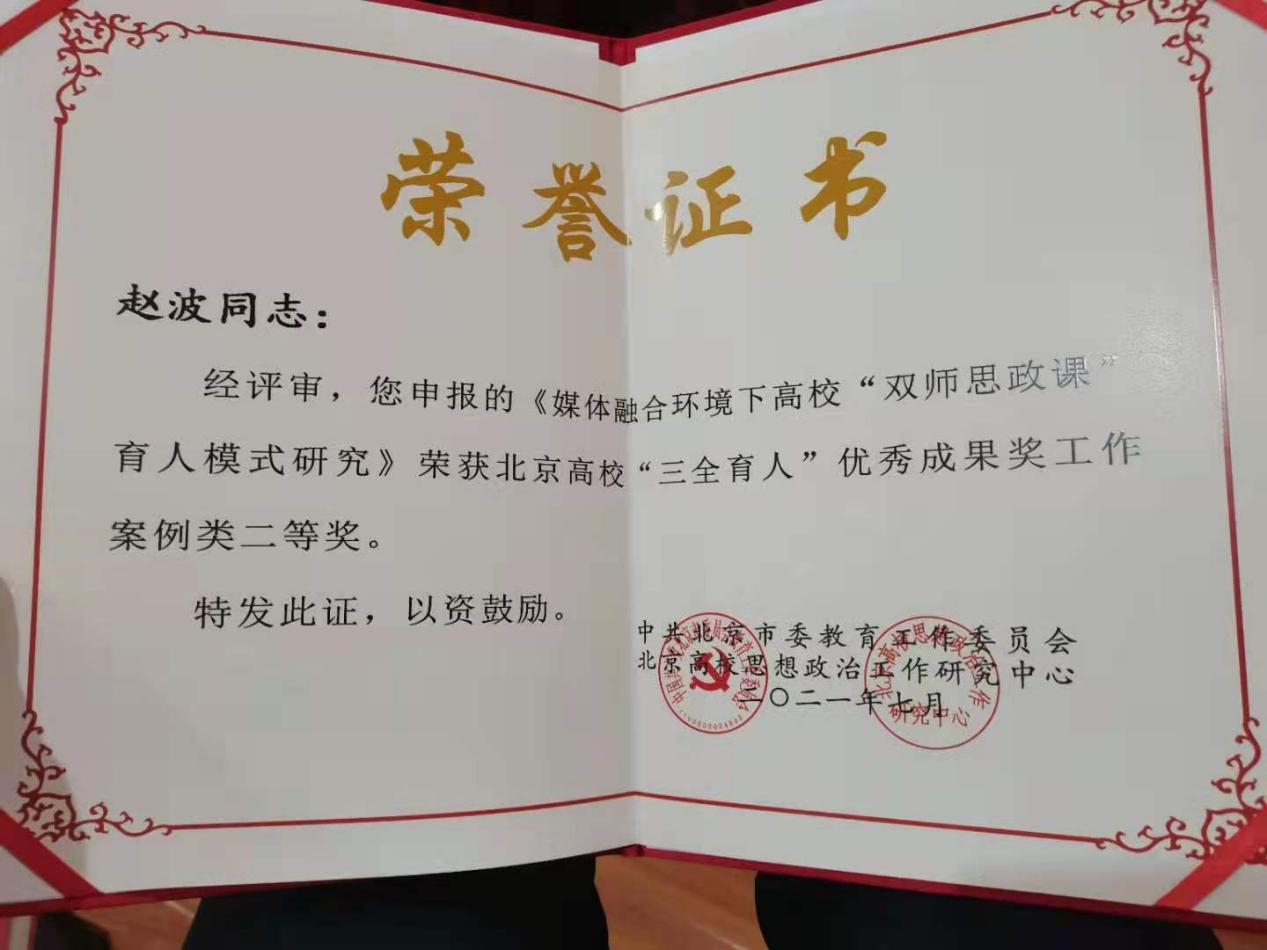 荣誉证书
赵波同志：
经评审，您申报的《媒体融合环境下高校“双师思政课”
育人模式研究》荣获北京高校“三全育人”优秀成果奖工作
案例类二等奖。
特发此证，以资鼓励。
中共北京市委教育工作委员会
北京高校思想政治工作研究中心
二〇二一年七月
北京高校思想政治工作
研究中心